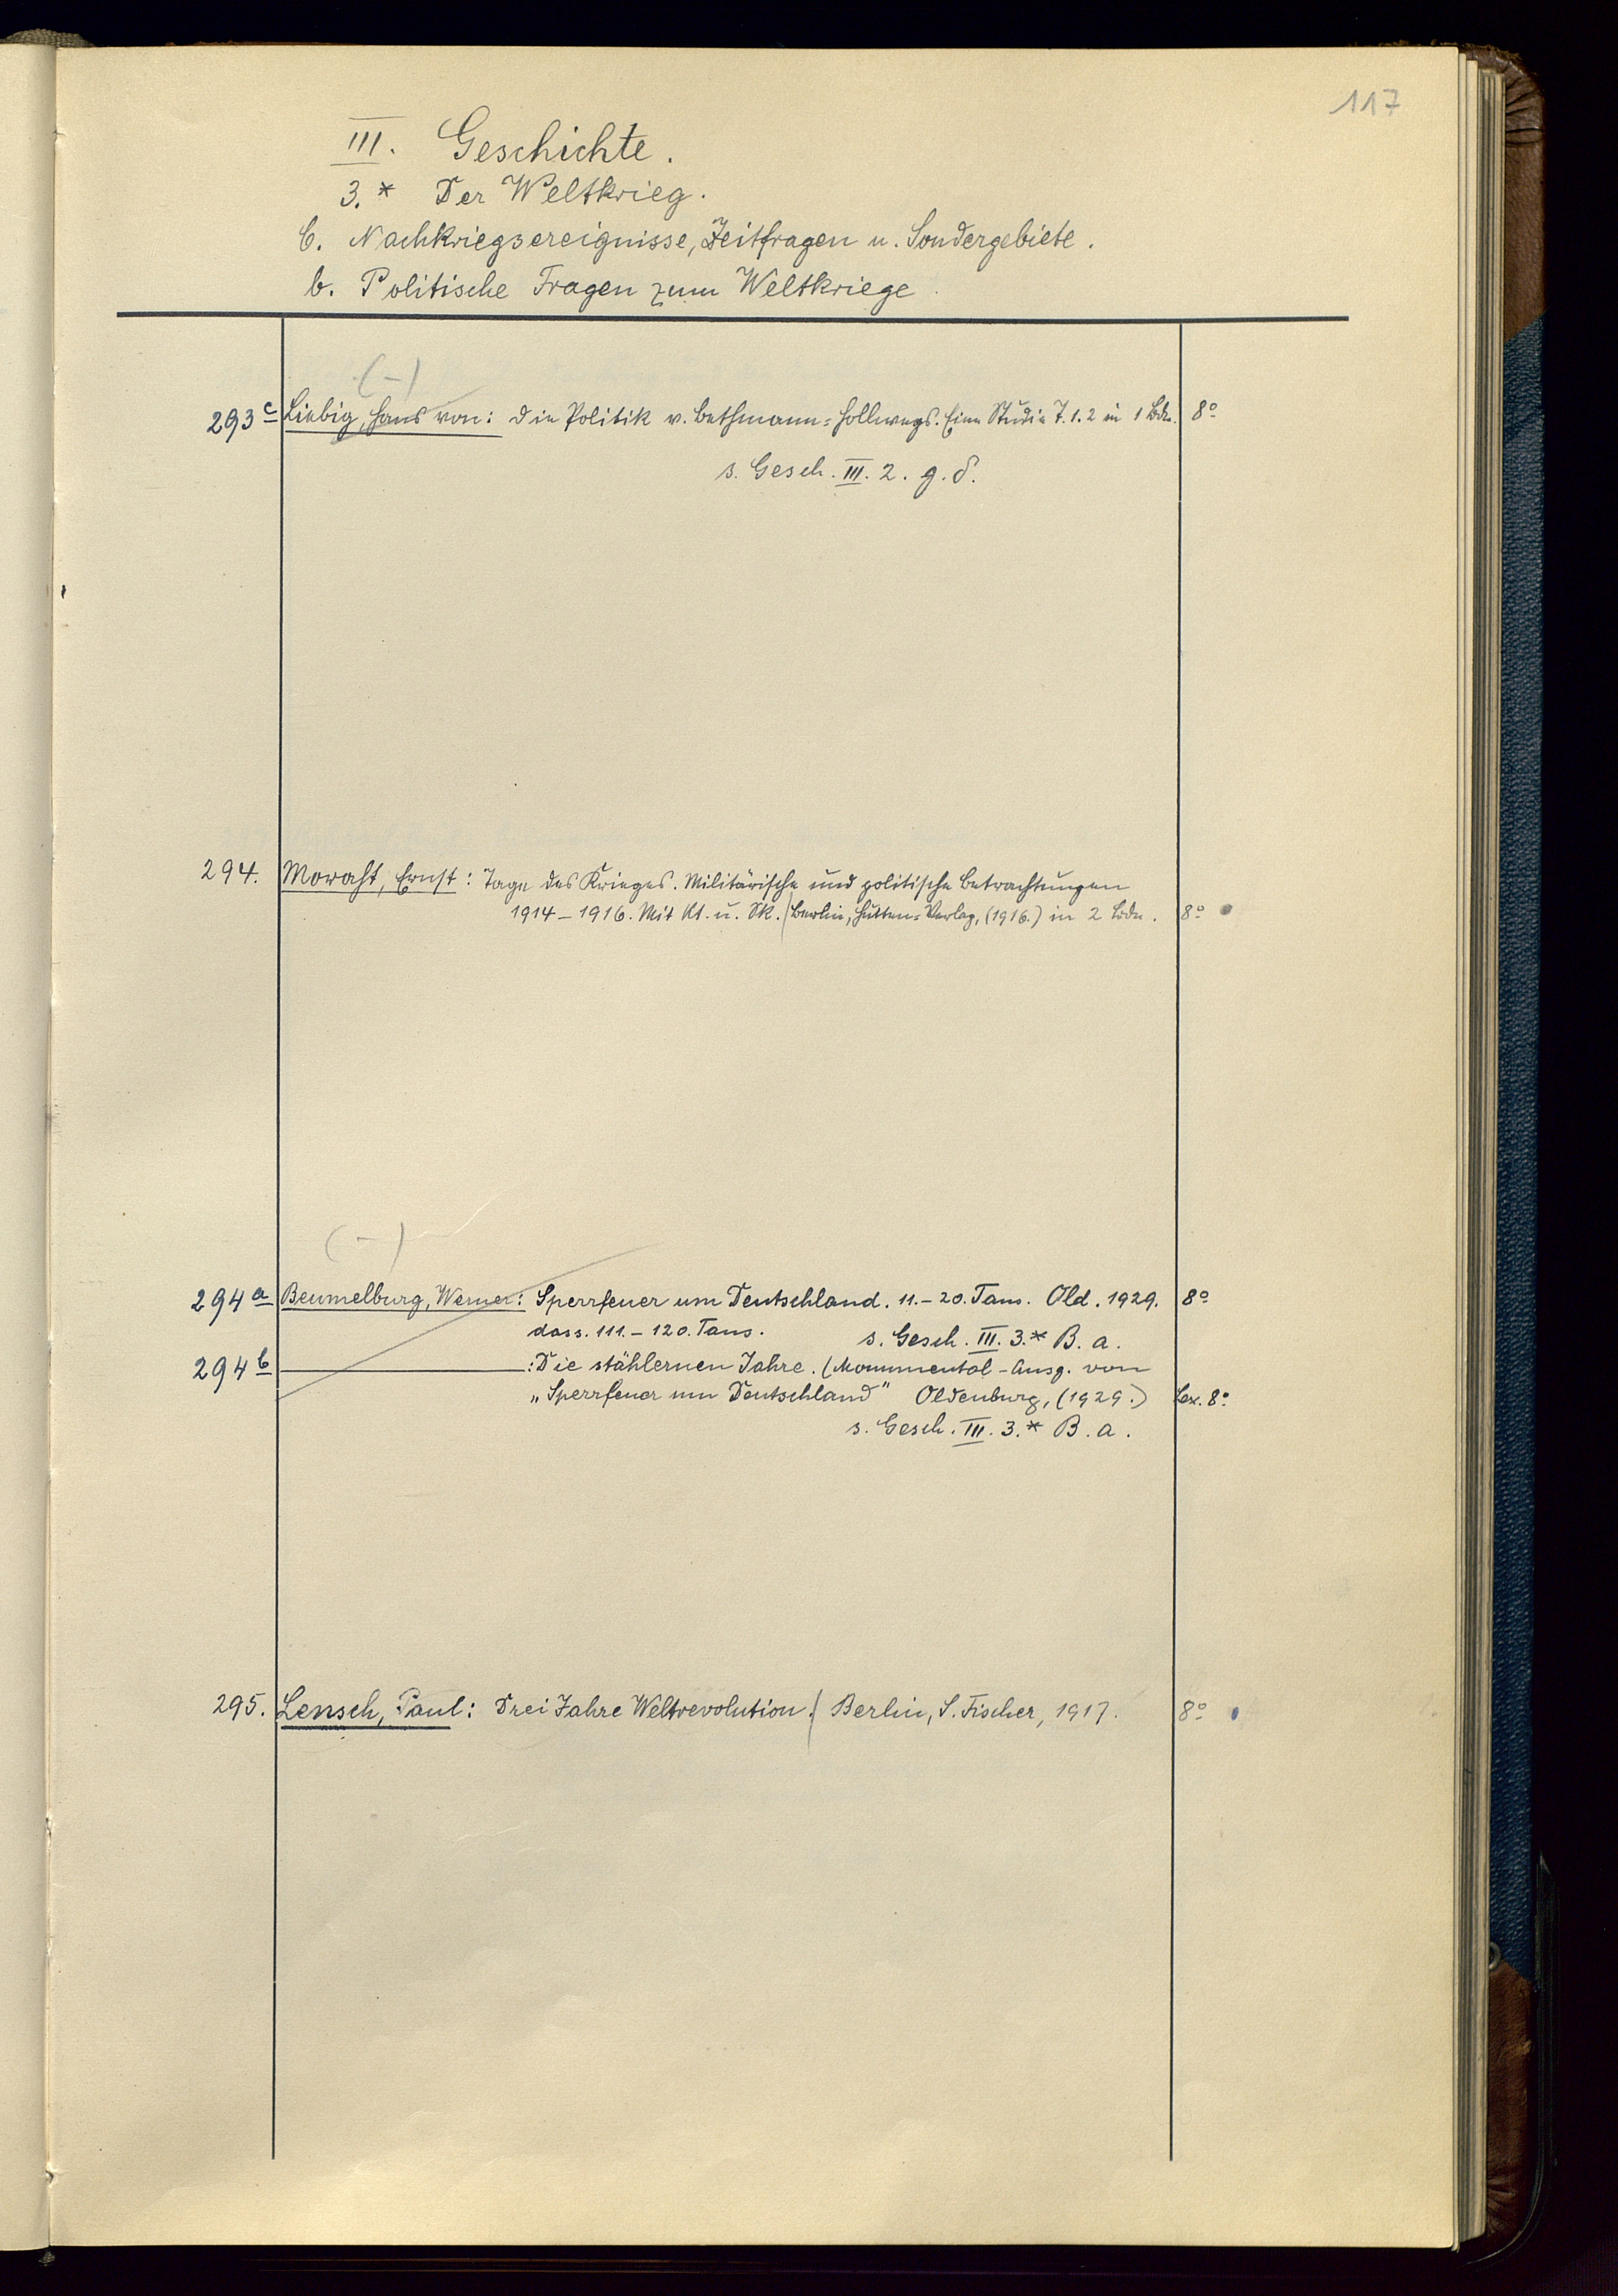 117
III. Geschichte.
3.* Der Weltkrieg.
C. Nachkriegsereignisse, Zeitfragen u. Sondergebiete.
b. Politische Fragen zum Weltkriege.
(-)
293c Liebig, Hans von: Die Politik v. Bethmann=Hollwegs. Eine Studie T. 1.2 in 1 Bde. 8°
s. Gesch. III. 2. g. δ.
294. Moraht, Ernst: Tage des Krieges. Militärische und politische Betrachtungen
1914-1916. Mit Kt. u. Sk. / Berlin, Hutten=Verlag, (1916.) in 2 Bdn. 8°
(-)
294a Beumelburg, Werner: Sperrfeuer um Deutschland. 11.-20. Taus. Old. 1929. 8°
dass. 111.-120. Taus. s. Gesch. III. 3.* B. a.
294b ——— : Die stählernen Jahre. (Monumental-Ausg. von
„Sperrfeuer um Deutschland" Oldenburg, (1929.) Lex. 8°
s. Gesch. III. 3.* B. a.
295. Lensch, Paul: Drei Jahre Weltrevolution. / Berlin, S. Fischer, 1917. 8°